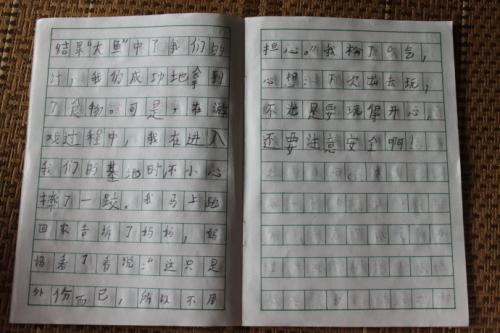 结果"大鱼"中了我们的
计，我们成功地拿到
了食物。可是，在游
戏过程中，我在进入
我们的基地时不小心
摔了一跤。我马上跑
回家告诉了妈妈，妈
妈看了看说："这只是
外伤而已，所以不用
担心。"我松了口气，
心想：下次出去玩，
不光是要玩得开心，
还要注意安全啊！